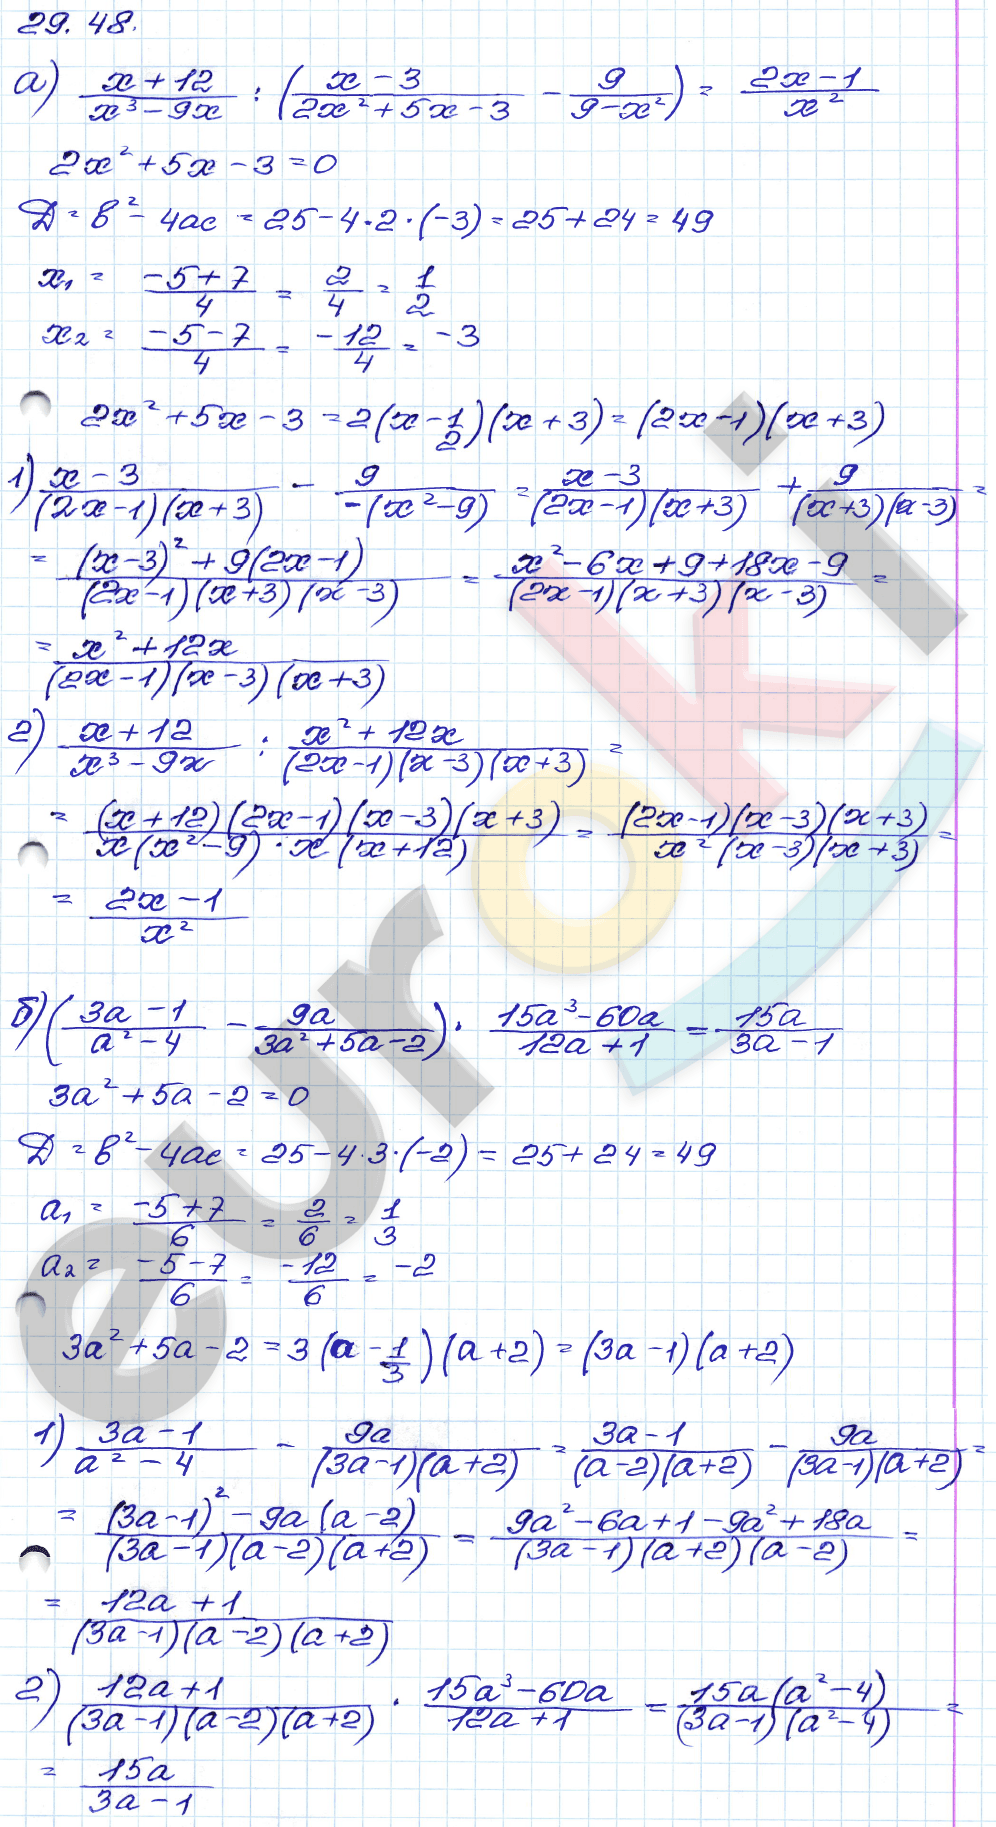 29.48.
а) (x+12)/(x³-9x) : ((x-3)/(2x²+5x-3) - 9/(9-x²)) = (2x-1)/x²
2x²+5x-3=0
Д=b²-4ac = 25-4·2·(-3)=25+24=49
x₁ = (-5+7)/4 = 2/4 = 1/2
x₂ = (-5-7)/4 = -12/4 = -3
2x²+5x-3=2(x-1/2)(x+3)=(2x-1)(x+3)
1) (x-3)/((2x-1)(x+3)) - 9/(-(x²-9)) = (x-3)/((2x-1)(x+3)) + 9/((x+3)(x-3)) =
= ((x-3)²+9(2x-1))/((2x-1)(x+3)(x-3)) = (x²-6x+9+18x-9)/((2x-1)(x+3)(x-3)) =
= (x²+12x)/((2x-1)(x-3)(x+3))
2) (x+12)/(x³-9x) : (x²+12x)/((2x-1)(x-3)(x+3)) =
= ((x+12)(2x-1)(x-3)(x+3))/(x(x²-9)·x(x+12)) = ((2x-1)(x-3)(x+3))/(x²(x-3)(x+3)) =
= (2x-1)/x²
б) ((3a-1)/(a²-4) - 9a/(3a²+5a-2)) · (15a³-60a)/(12a+1) = 15a/(3a-1)
3a²+5a-2=0
Д=b²-4ac=25-4·3·(-2)=25+24=49
a₁ = (-5+7)/6 = 2/6 = 1/3
a₂ = (-5-7)/6 = -12/6 = -2
3a²+5a-2=3(a-1/3)(a+2)=(3a-1)(a+2)
1) (3a-1)/(a²-4) - 9a/((3a-1)(a+2)) = (3a-1)/((a-2)(a+2)) - 9a/((3a-1)(a+2)) =
= ((3a-1)²-9a(a-2))/((3a-1)(a-2)(a+2)) = (9a²-6a+1-9a²+18a)/((3a-1)(a+2)(a-2)) =
= (12a+1)/((3a-1)(a-2)(a+2))
2) (12a+1)/((3a-1)(a-2)(a+2)) · (15a³-60a)/(12a+1) = (15a(a²-4))/((3a-1)(a²-4)) =
= 15a/(3a-1)
euroki